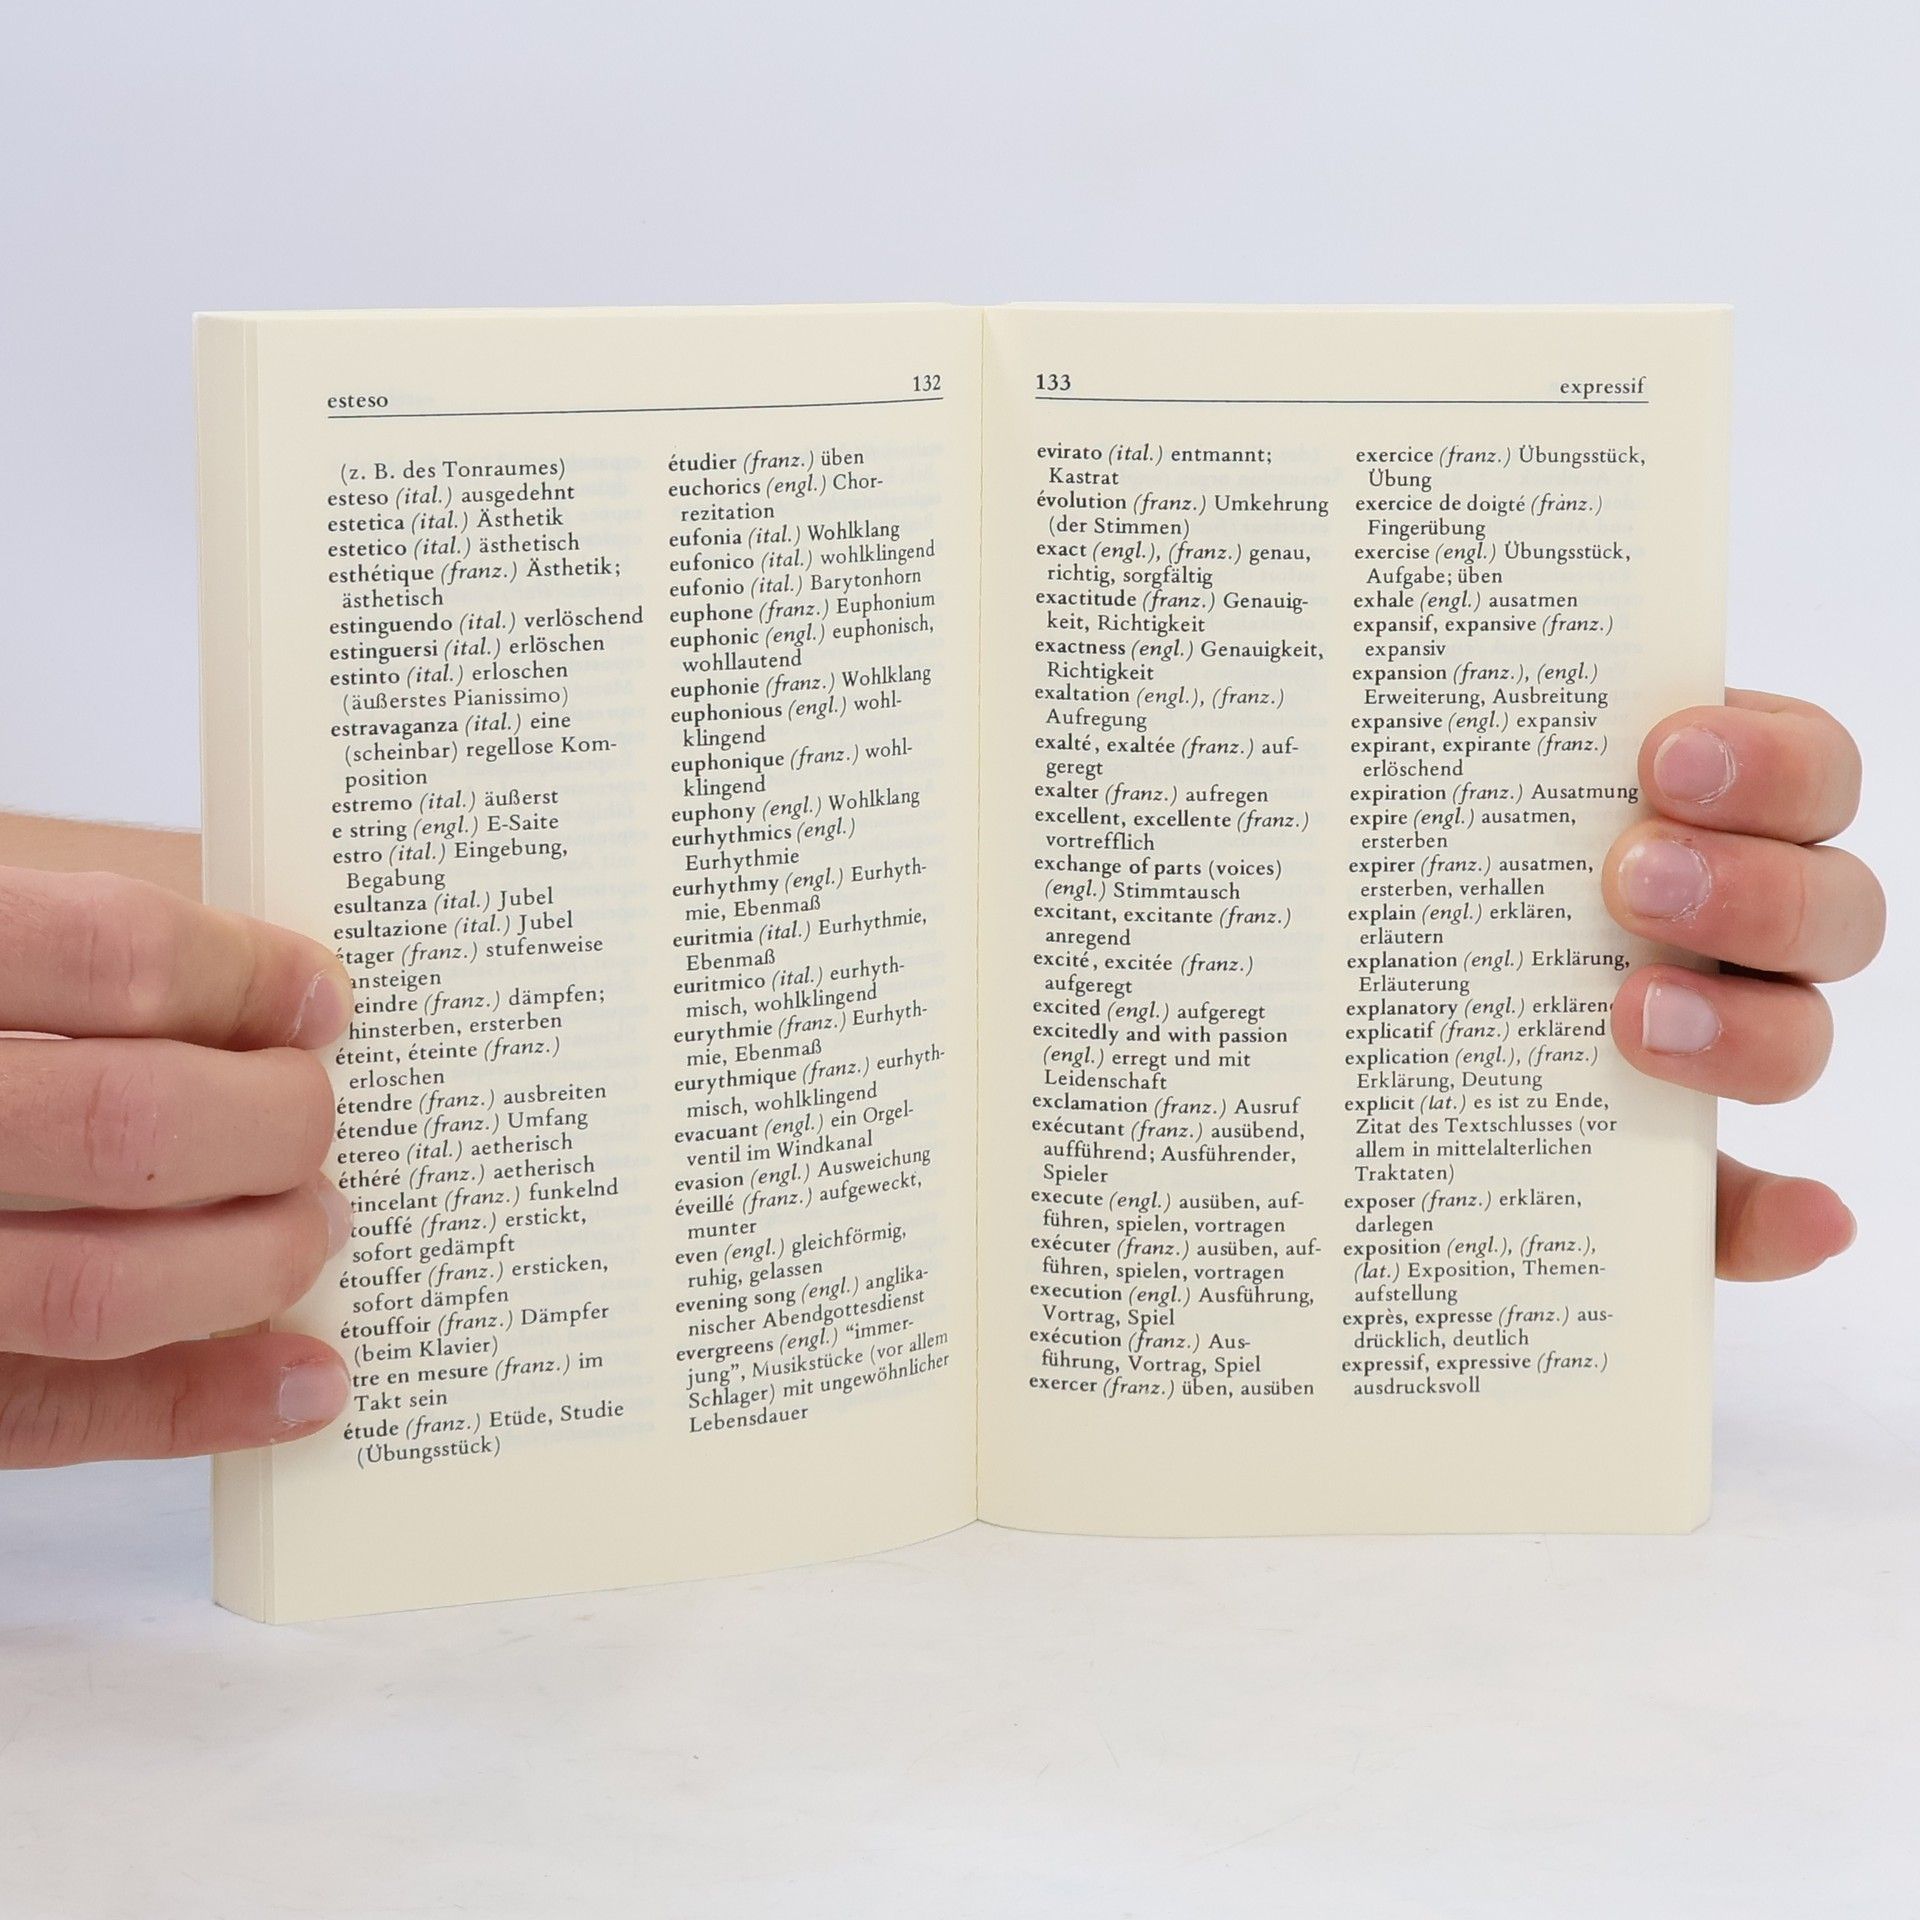 esteso
132
(z. B. des Tonraumes)
esteso (ital.) ausgedehnt
estetica (ital.) Ästhetik
estetico (ital.) ästhetisch
esthétique (franz.) Ästhetik;
ästhetisch
estinguendo (ital.) verlöschend
estinguersi (ital.) erlöschen
estinto (ital.) erloschen
(äußerstes Pianissimo)
estravaganza (ital.) eine
(scheinbar) regellose Kom-
position
estremo (ital.) äußerst
e string (engl.) E-Saite
estro (ital.) Eingebung,
Begabung
esultanza (ital.) Jubel
esultazione (ital.) Jubel
étager (franz.) stufenweise
ansteigen
eindre (franz.) dämpfen;
hinsterben, ersterben
éteint, éteinte (franz.)
erloschen
étendre (franz.) ausbreiten
étendue (franz.) Umfang
etereo (ital.) aetherisch
éthéré (franz.) aetherisch
tincelant (franz.) funkelnd
touffé (franz.) erstickt,
sofort gedämpft
étouffer (franz.) ersticken,
sofort dämpfen
étouffoir (franz.) Dämpfer
(beim Klavier)
tre en mesure (franz.) im
Takt sein
étude (franz.) Etüde, Studie
(Übungsstück)
étudier (franz.) üben
euchorics (engl.) Chor-
rezitation
eufonia (ital.) Wohlklang
eufonico (ital.) wohlklingend
eufonio (ital.) Barytonhorn
euphone (franz.) Euphonium
euphonic (engl.) euphonisch,
wohllautend
euphonie (franz.) Wohlklang
euphonious (engl.) wohl-
klingend
euphonique (franz.) wohl-
klingend
euphony (engl.) Wohlklang
eurhythmics (engl.)
Eurhythmie
eurhythmy (engl.) Eurhyth-
mie, Ebenmaß
euritmia (ital.) Eurhythmie,
Ebenmaß
euritmico (ital.) eurhyth-
misch, wohlklingend
eurythmie (franz.) Eurhyth-
mie, Ebenmaß
eurythmique (franz.) eurhyth-
misch, wohlklingend
evacuant (engl.) ein Orgel-
ventil im Windkanal
evasion (engl.) Ausweichung
éveillé (franz.) aufgeweckt,
munter
even (engl.) gleichförmig,
ruhig, gelassen
evening song (engl.) anglika-
nischer Abendgottesdienst
evergreens (engl.) “immer-
jung”, Musikstücke (vor allem
Schlager) mit ungewöhnlicher
Lebensdauer
133
expressif
evirato (ital.) entmannt;
Kastrat
évolution (franz.) Umkehrung
(der Stimmen)
exact (engl.), (franz.) genau,
richtig, sorgfältig
exactitude (franz.) Genauig-
keit, Richtigkeit
exactness (engl.) Genauigkeit,
Richtigkeit
exaltation (engl.), (franz.)
Aufregung
exalté, exaltée (franz.) auf-
geregt
exalter (franz.) aufregen
excellent, excellente (franz.)
vortrefflich
exchange of parts (voices)
(engl.) Stimmtausch
excitant, excitante (franz.)
anregend
excité, excitée (franz.)
aufgeregt
excited (engl.) aufgeregt
excitedly and with passion
(engl.) erregt und mit
Leidenschaft
exclamation (franz.) Ausruf
exécutant (franz.) ausübend,
aufführend; Ausführender,
Spieler
execute (engl.) ausüben, auf-
führen, spielen, vortragen
exécuter (franz.) ausüben, auf-
führen, spielen, vortragen
execution (engl.) Ausführung,
Vortrag, Spiel
exécution (franz.) Aus-
führung, Vortrag, Spiel
exercer (franz.) üben, ausüben
exercice (franz.) Übungsstück,
Übung
exercice de doigté (franz.)
Fingerübung
exercise (engl.) Übungsstück,
Aufgabe; üben
exhale (engl.) ausatmen
expansif, expansive (franz.)
expansiv
expansion (franz.), (engl.)
Erweiterung, Ausbreitung
expansive (engl.) expansiv
expirant, expirante (franz.)
erlöschend
expiration (franz.) Ausatmung
expire (engl.) ausatmen,
ersterben
expirer (franz.) ausatmen,
ersterben, verhallen
explain (engl.) erklären,
erläutern
explanation (engl.) Erklärung,
Erläuterung
explanatory (engl.) erklären
explicatif (franz.) erklärend
explication (engl.), (franz.)
Erklärung, Deutung
explicit (lat.) es ist zu Ende,
Zitat des Textschlusses (vor
allem in mittelalterlichen
Traktaten)
exposer (franz.) erklären,
darlegen
exposition (engl.), (franz.),
(lat.) Exposition, Themen-
aufstellung
exprès, expresse (franz.) aus-
drücklich, deutlich
expressif, expressive (franz.)
ausdrucksvoll